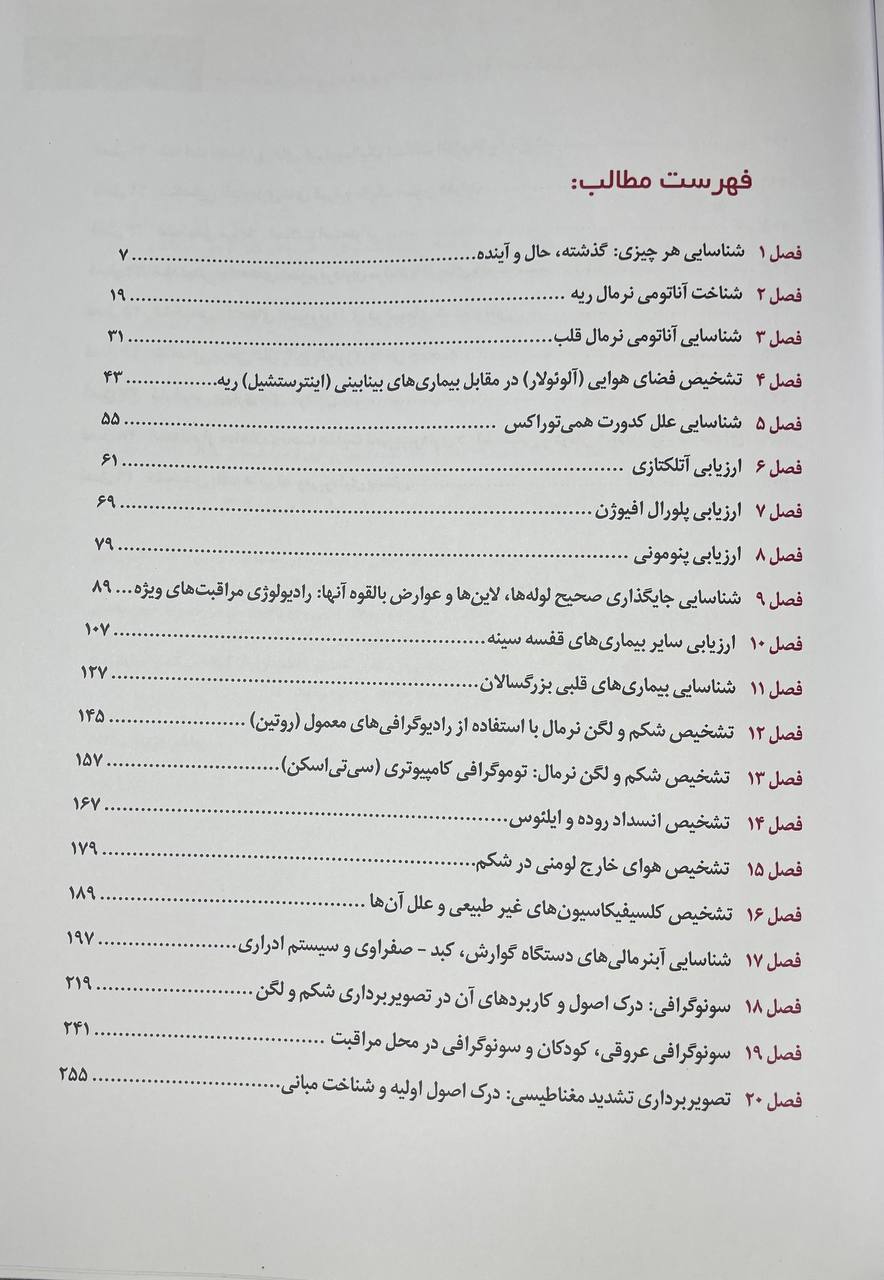 فهرست مطالب:
فصل ۱ شناسایی هر چیزی: گذشته، حال و آینده ۷
فصل ۲ شناخت آناتومی نرمال ریه ۱۹
فصل ۳ شناسایی آناتومی نرمال قلب ۳۱
فصل ۴ تشخیص فضای هوایی (آلوئولار) در مقابل بیماری‌های بینابینی (اینترستشیل) ریه ۴۳
فصل ۵ شناسایی علل کدورت همی‌توراکس ۵۵
فصل ۶ ارزیابی آتلکتازی ۶۱
فصل ۷ ارزیابی پلورال افیوژن ۶۹
فصل ۸ ارزیابی پنومونی ۷۹
فصل ۹ شناسایی جایگذاری صحیح لوله‌ها، لاین‌ها و عوارض بالقوه آنها: رادیولوژی مراقبت‌های ویژه ۸۹
فصل ۱۰ ارزیابی سایر بیماری‌های قفسه سینه ۱۰۷
فصل ۱۱ شناسایی بیماری‌های قلبی بزرگسالان ۱۲۷
فصل ۱۲ تشخیص شکم و لگن نرمال با استفاده از رادیوگرافی‌های معمول (روتین) ۱۴۵
فصل ۱۳ تشخیص شکم و لگن نرمال: توموگرافی کامپیوتری (سی‌تی‌اسکن) ۱۵۷
فصل ۱۴ تشخیص انسداد روده و ایلئوس ۱۶۷
فصل ۱۵ تشخیص هوای خارج لومنی در شکم ۱۷۹
فصل ۱۶ تشخیص کلسیفیکاسیون‌های غیر طبیعی و علل آن‌ها ۱۸۹
فصل ۱۷ شناسایی آبنرمالی‌های دستگاه گوارش، کبد - صفراوی و سیستم ادراری ۱۹۷
فصل ۱۸ سونوگرافی: درک اصول و کاربردهای آن در تصویربرداری شکم و لگن ۲۱۹
فصل ۱۹ سونوگرافی عروقی، کودکان و سونوگرافی در محل مراقبت ۲۴۱
فصل ۲۰ تصویربرداری تشدید مغناطیسی: درک اصول اولیه و شناخت مبانی ۲۵۵